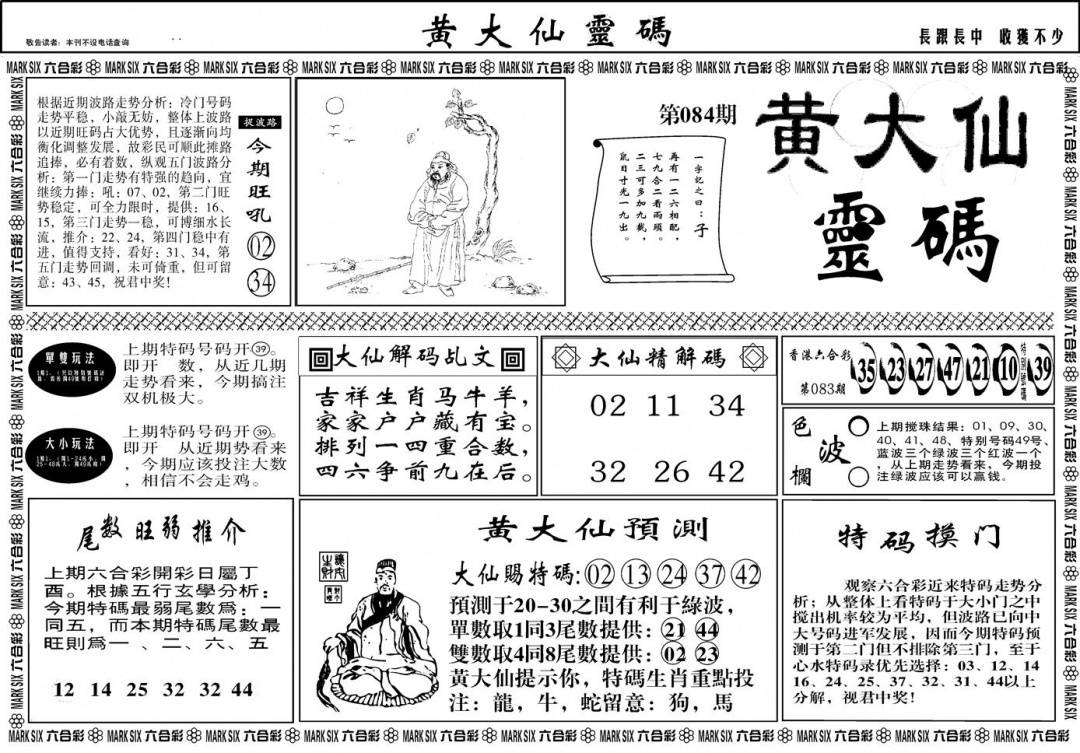 敬告读者：本刊不设电话查询
黄大仙靈碼
長跟長中 收獲不少
MARK SIX 六合彩 MARK SIX 六合彩 MARK SIX 六合彩 MARK SIX 六合彩 MARK SIX 六合彩 MARK SIX 六合彩 MARK SIX 六合彩 MARK SIX 六合彩 MARK SIX 六合彩 MARK SIX 六合彩 MARK SIX 六合彩
根据近期波路走势分析：冷门号码
走势平稳，小敲无妨，整体上波路
以近期旺码占大优势，且逐渐向均
衡化调整发展，故彩民可顺此摊路
追捧，必有着数，纵观五门波路分
析：第一门走势有特强的趋向，宜
继续力捧：吼：07、02，第二门旺
势稳定，可全力限时，提供：16、
15，第三门走势一稳，可博细水长
流，推介：22、24，第四门稳中有
进，值得支持，看好：31、34，第
五门走势回调，未可倚重，但可留
意：43、45，祝君中奖！
捉波路
今期旺吼
02
34
第084期
一字記之曰：子
再有一二六相配，
七九合二看兩頭。
二三可多加九截，
鼠目寸光一九出。
黄大仙
靈碼
單雙玩法
上期特码号码开㊴。
即开　数，从近几期
走势看来，今期搞注
双机极大。
大小玩法
上期特码号码开㊴。
即开　从近期势看来
，今期应该投注大数
，相信不会走鸡。
大仙解码乩文
吉祥生肖马牛羊，
家家户户藏有宝。
排列一四重合数，
四六争前九在后。
大仙精解碼
02 11 34
32 26 42
香港六合彩
第083期
35 23 27 47 21 10 特别號碼 39
色波欄
上期搅珠结果：01、09、30、
40、41、48、特别号码49号、
蓝波三个绿波三个红波一个
，从上期走势看来，今期投
注绿波应该可以赢钱。
尾数旺弱推介
上期六合彩開彩日屬丁
酉。根據五行玄學分析：
今期特碼最弱尾數爲：一
同五，而本期特碼尾數最
旺則爲一、二、六、五
12 14 25 32 32 44
黄大仙預測
大仙賜特碼：02 13 24 37 42
預測于20-30之間有利于綠波，
單數取1同3尾數提供：21 44
雙數取4同8尾數提供：02 23
黄大仙提示你，特碼生肖重點投
注：龍，牛，蛇留意：狗，馬
特码摸门
观察六合彩近来特码走势分
析；从整体上看特码于大小门之中
搅出机率较为平均，但波路已向中
大号码进军发展，因而今期特码预
测于第二门但不排除第三门，至于
心水特码录优先选择：03、12、14
16、24、25、37、32、31、44以上
分解，视君中奖！
MARK SIX 六合彩 MARK SIX 六合彩 MARK SIX 六合彩 MARK SIX 六合彩 MARK SIX 六合彩 MARK SIX 六合彩 MARK SIX 六合彩 MARK SIX 六合彩 MARK SIX 六合彩 MARK SIX 六合彩 MARK SIX 六合彩